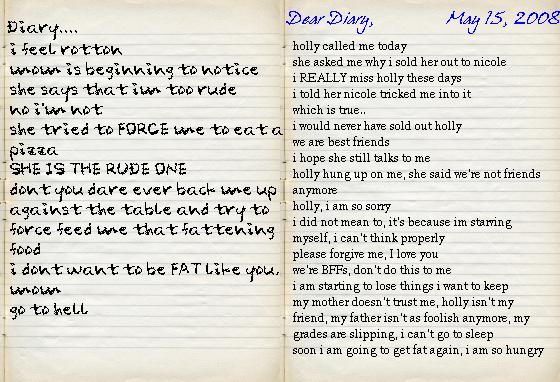 Diary....
i feel rotton
mom is beginning to notice
she says that im too rude
no i'm not
she tried to FORCE me to eat a
pizza
SHE IS THE RUDE ONE
dont you dare ever back me up
against the table and try to
force feed me that fattening
food
i dont want to be FAT like you,
mom
go to hell
Dear Diary, May 15, 2008
holly called me today
she asked me why i sold her out to nicole
i REALLY miss holly these days
i told her nicole tricked me into it
which is true..
i would never have sold out holly
we are best friends
i hope she still talks to me
holly hung up on me, she said we're not friends
anymore
holly, i am so sorry
i did not mean to, it's because im starving
myself, i can't think properly
please forgive me, I love you
we're BFFs, don't do this to me
i am starting to lose things i want to keep
my mother doesn't trust me, holly isn't my
friend, my father isn't as foolish anymore, my
grades are slipping, i can't go to sleep
soon i am going to get fat again, i am so hungry